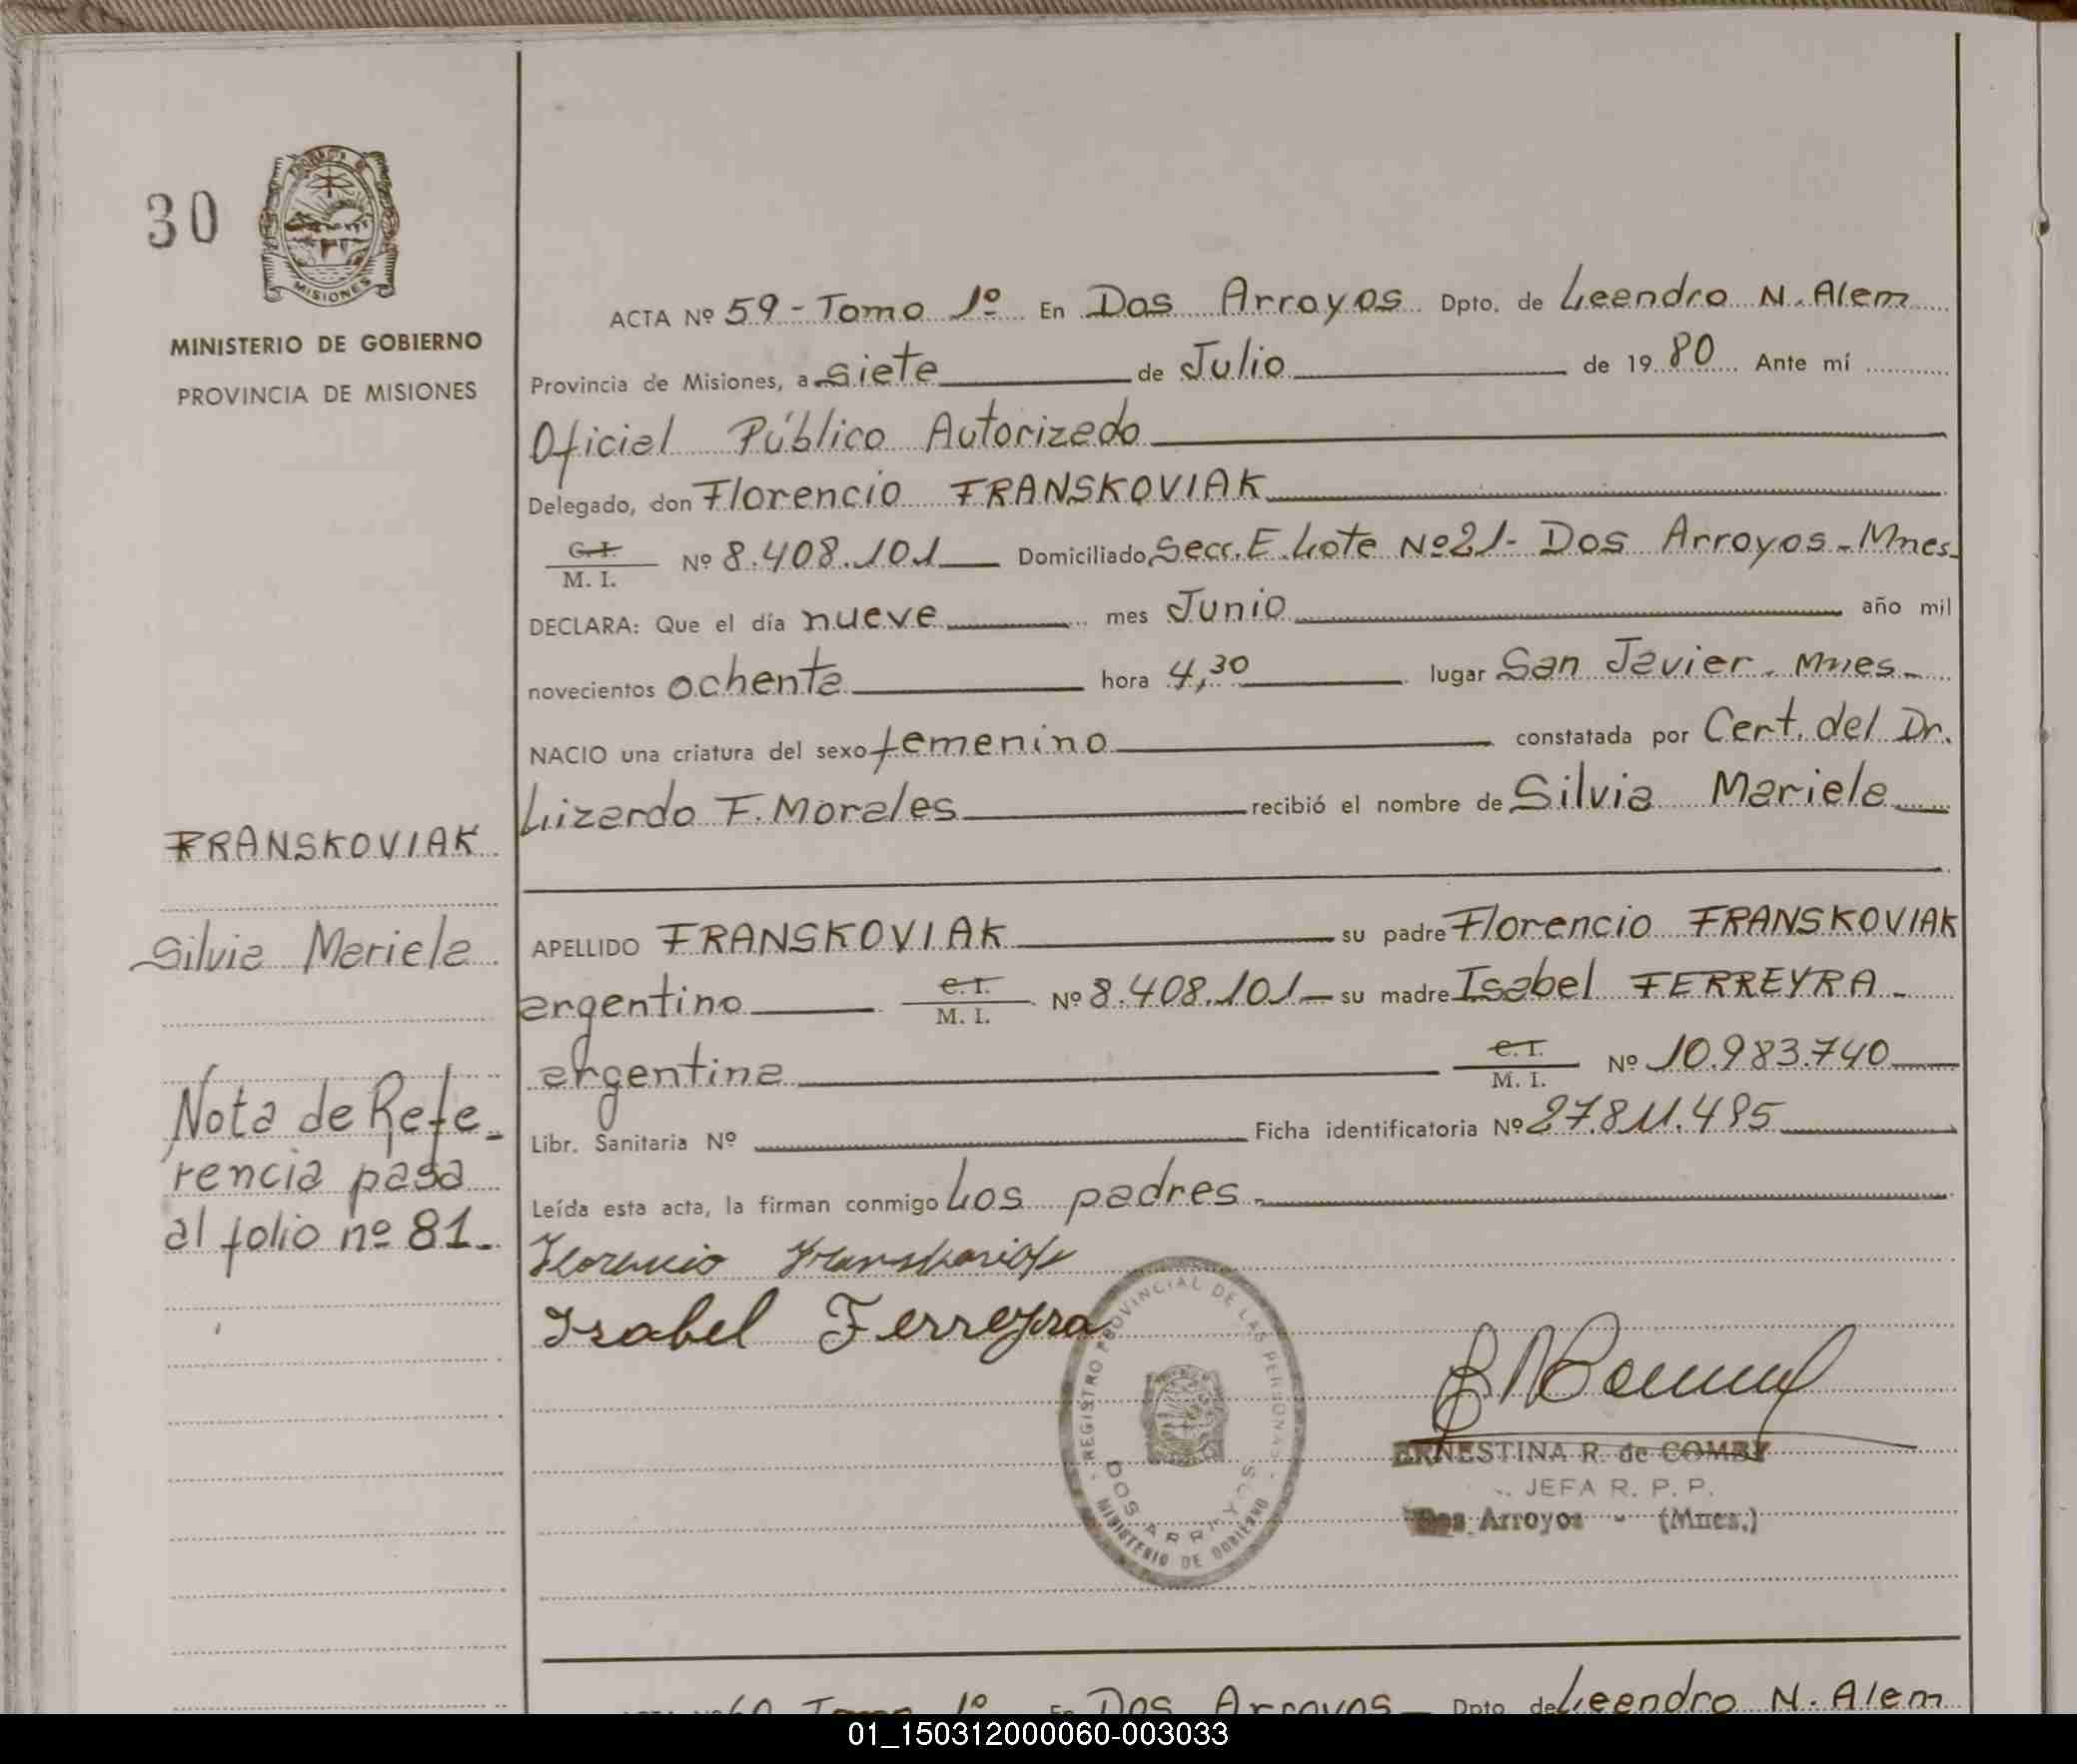 30
MISIONES
MINISTERIO DE GOBIERNO
PROVINCIA DE MISIONES
ACTA Nº 59 - Tomo 1º En Dos Arroyos Dpto. de Leandro N. Alem
Provincia de Misiones, a siete de Julio de 19 80 Ante mí
Oficial Público Autorizado
Delegado, don Florencio FRANSKOVIAK
C. I.
M. I. Nº 8.408.101 Domiciliado Secc. E. Lote Nº 21 - Dos Arroyos - Mnes.
DECLARA: Que el día nueve mes Junio año mil
novecientos ochenta hora 4,30 lugar San Javier. Mnes.
NACIO una criatura del sexo femenino constatada por Cert. del Dr.
Lizardo F. Morales recibió el nombre de Silvia Mariela
FRANSKOVIAK
Silvia Mariela
APELLIDO FRANSKOVIAK su padre Florencio FRANSKOVIAK
argentino C. I. M. I. Nº 8.408.101 su madre Isabel FERREYRA -
argentina C. I. M. I. Nº 10.983.740
Libr. Sanitaria Nº Ficha identificatoria Nº 27.811.495
Leída esta acta, la firman conmigo Los padres.
Nota de Refe-
rencia pasa
al folio nº 81.
Florencio Franskoviak
Isabel Ferreyra
REGISTRO PROVINCIAL DE LAS PERSONAS
DOS ARROYOS
MINISTERIO DE GOBIERNO
ERNESTINA R. de COMBY
JEFA R. P. P.
Dos Arroyos - (Mnes.)
60 Tomo 1º En Dos Arroyos Dpto de Leandro N. Alem
01_150312000060-003033